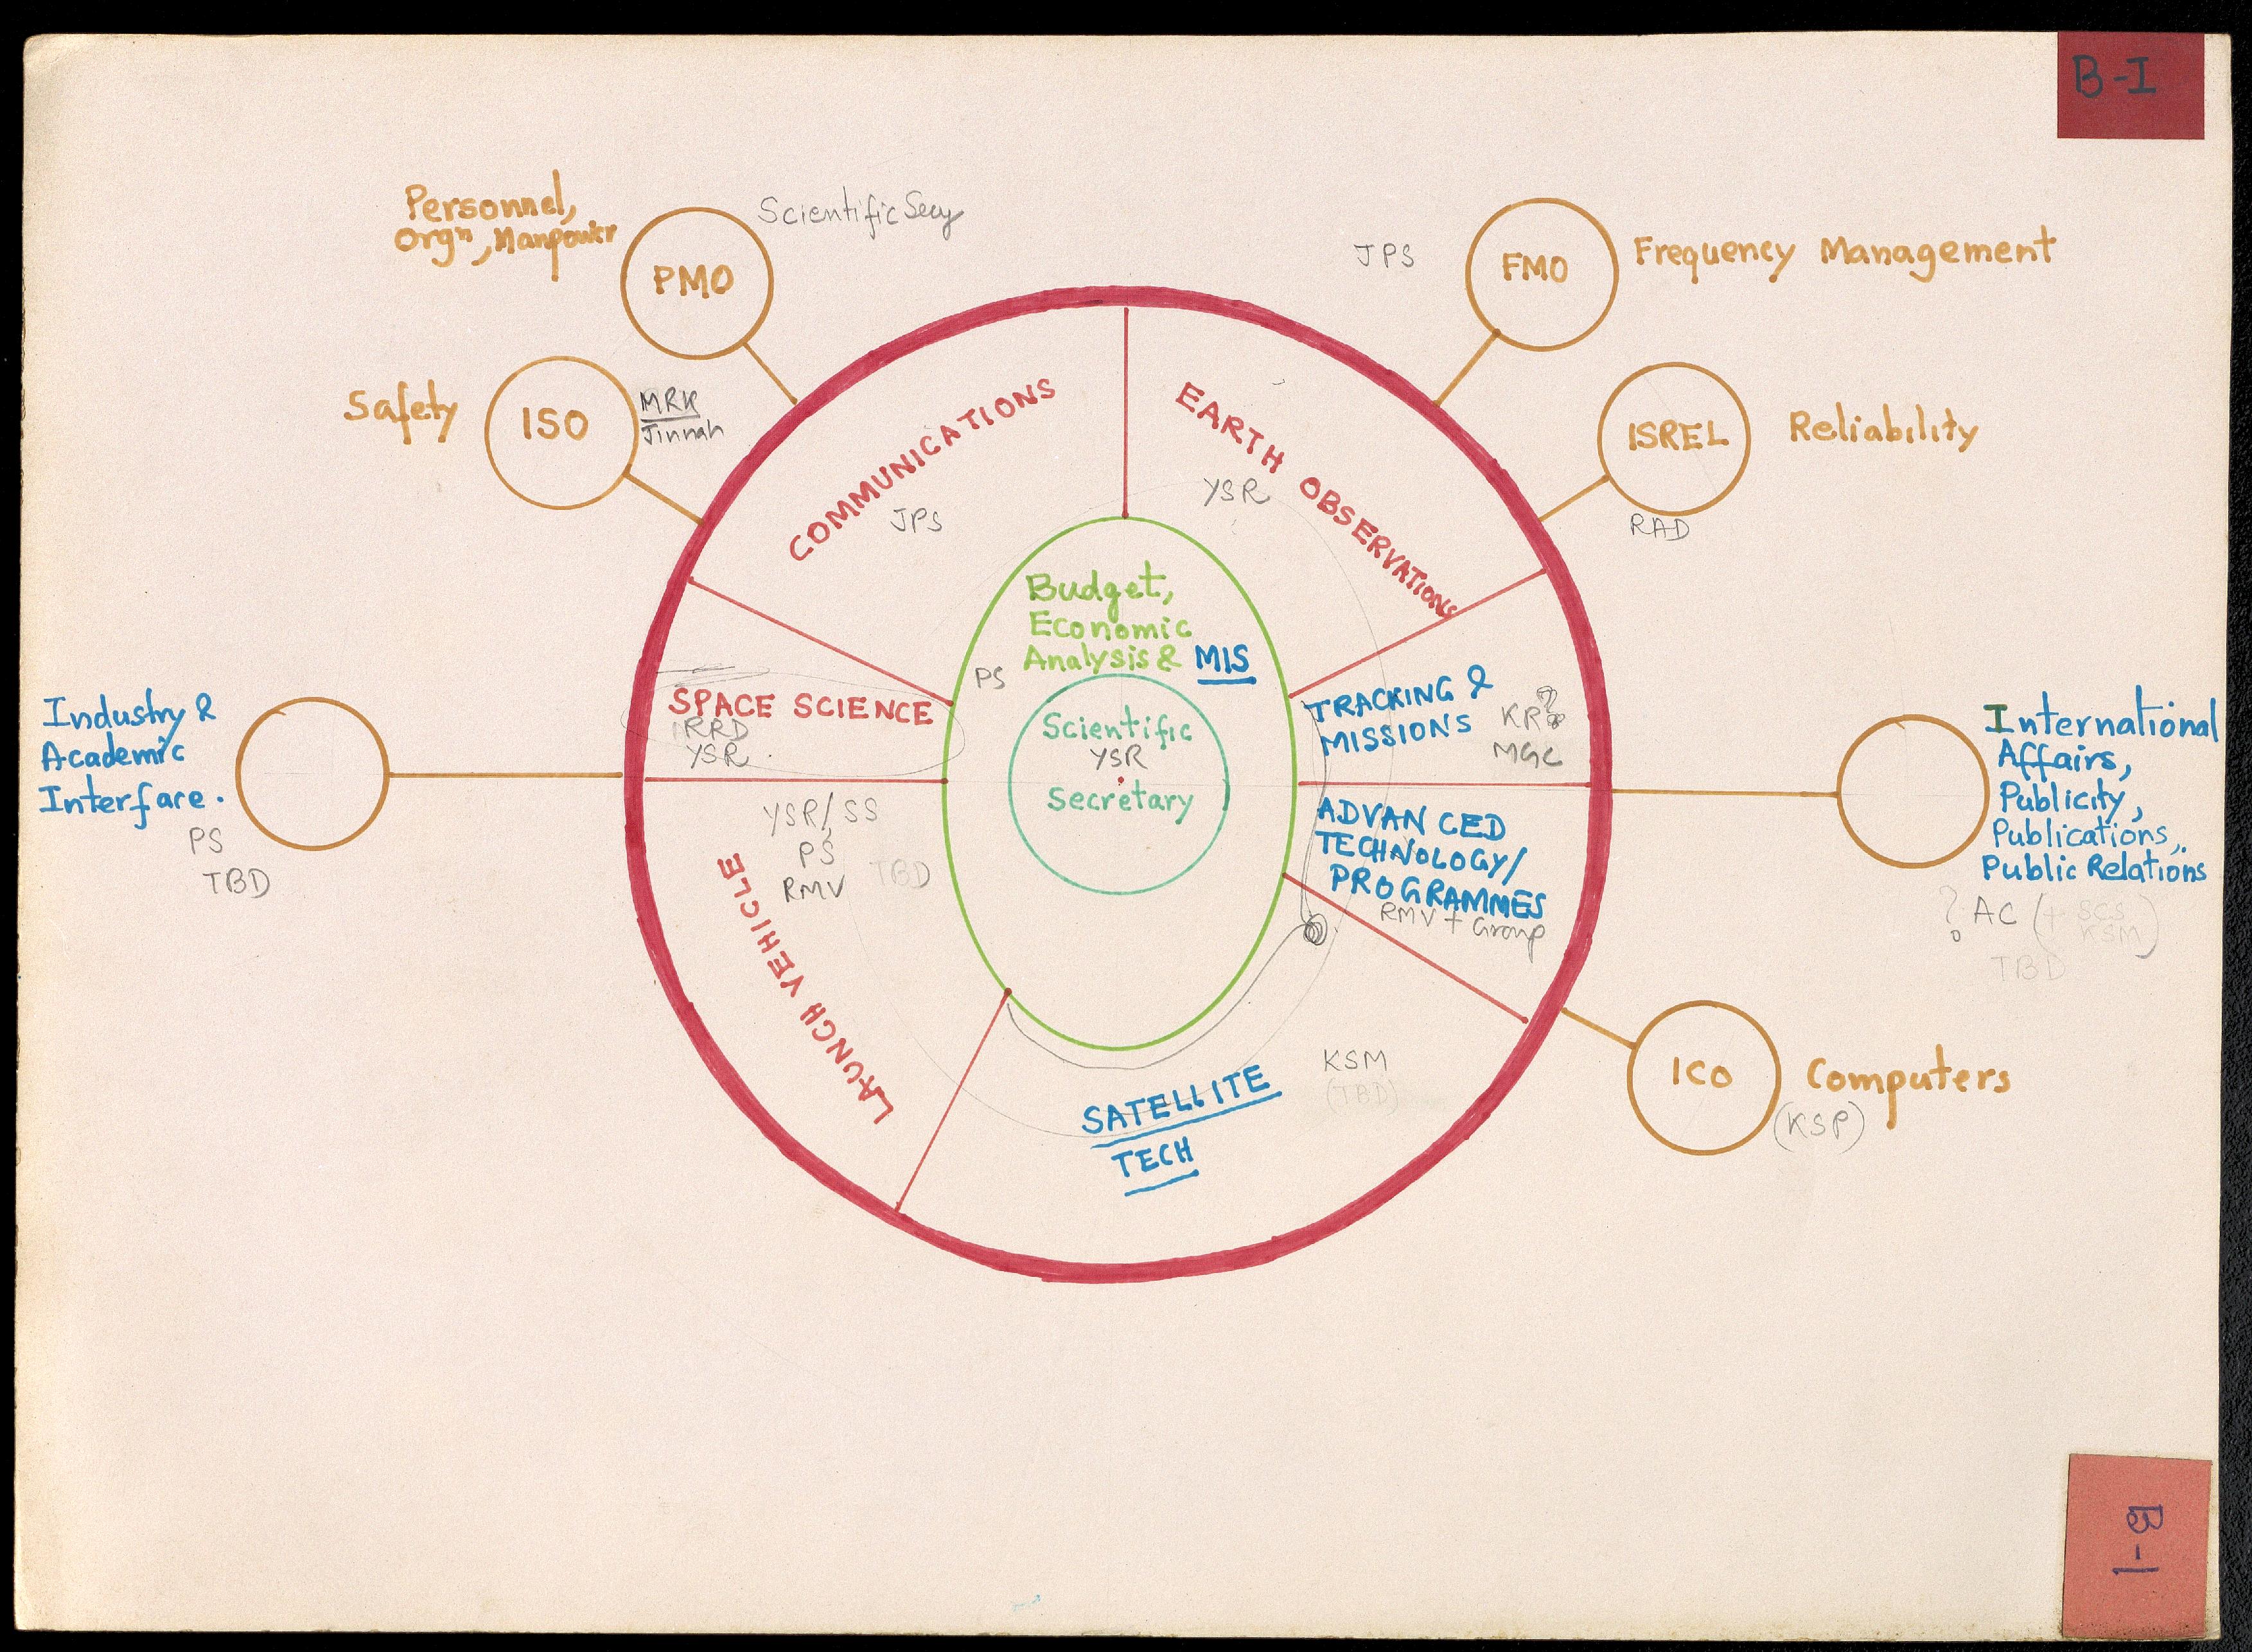 B-I
Personnel,
Orgn, Manpower
PMO
Scientific Secy
JPS
FMO
Frequency Management
Safety
ISO
MRK
Jinnah
ISREL
Reliability
RAD
COMMUNICATIONS
JPS
EARTH OBSERVATIONS
YSR
Budget,
Economic
Analysis & MIS
PS
Scientific
YSR
Secretary
SPACE SCIENCE
RRD
YSR
TRACKING &
MISSIONS
MGC
Industry &
Academic
Interface.
PS
TBD
International
Affairs,
Publicity,
Publications,
Public Relations
? AC (+ SCS
KSM)
TBD
YSR/SS
PS
RMV TBD
LAUNCH VEHICLE
ADVANCED
TECHNOLOGY/
PROGRAMMES
RMV + Group
KSM
(TBD)
SATELLITE
TECH
ICO
Computers
(KSP)
B-1